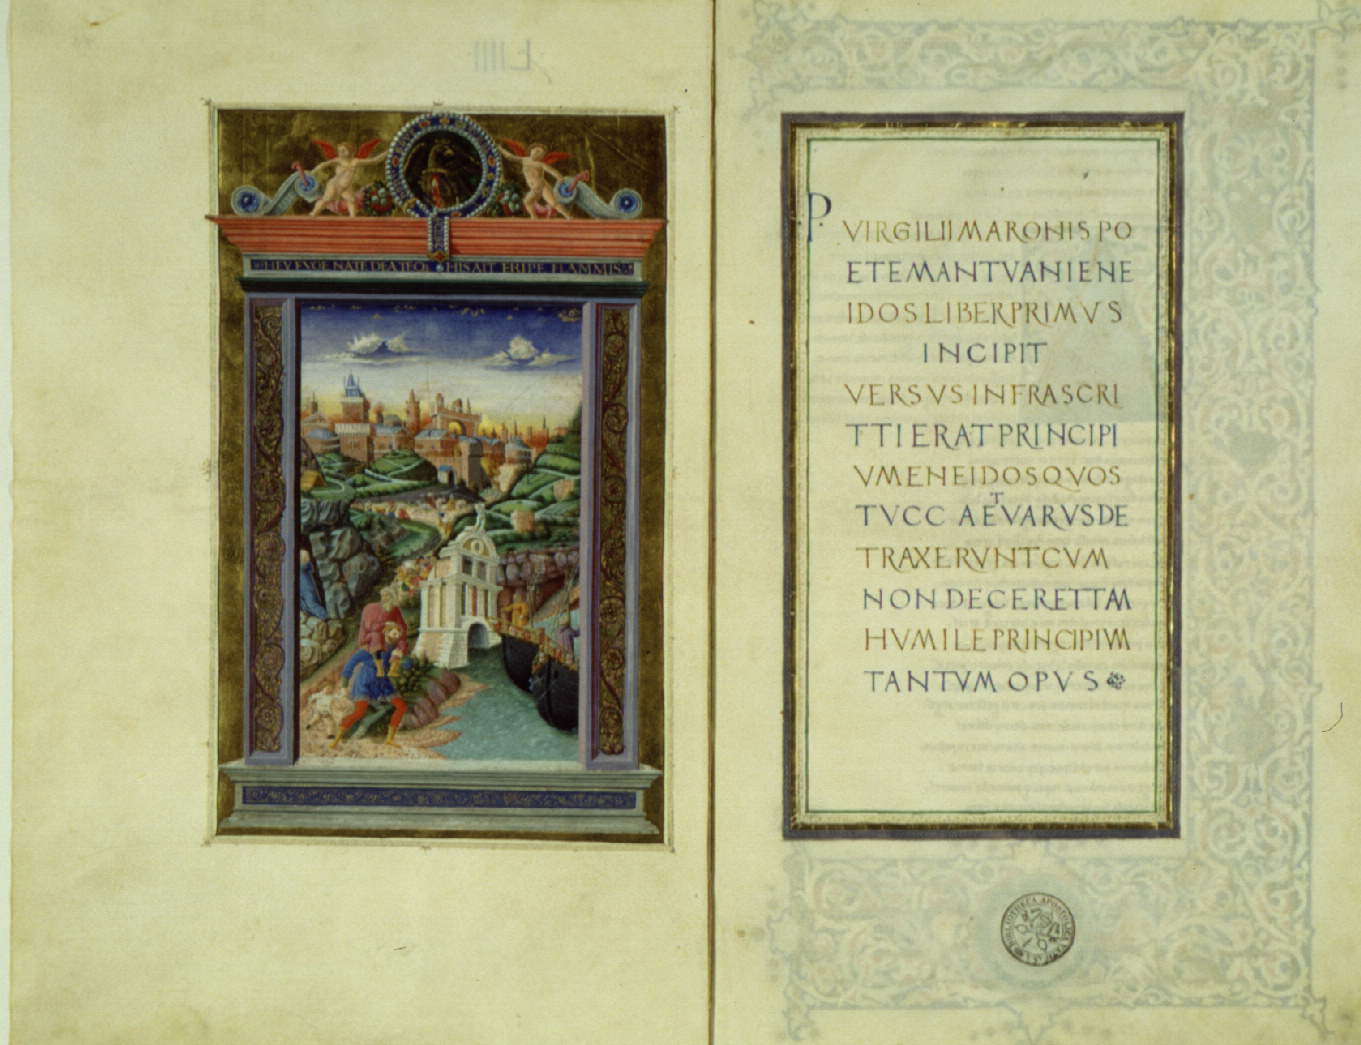 HEV FVGE NATE DEA TEQ HIS AIT ERIPE FLAMMIS
P. VIRGILII MARONIS PO
ETE MANTVANI ENE
IDOS LIBER PRIMVS
INCIPIT
VERSVS INFRASCRI
TTI ERAT PRINCIPI
VM ENEIDOS QVOS
TVCC A ET VARVS DE
TRAXERVNT CVM
NON DECERET TAM
HVMILE PRINCIPIVM
TANTVM OPVS
BIBLIOTHECA APOSTOLICA VATICANA